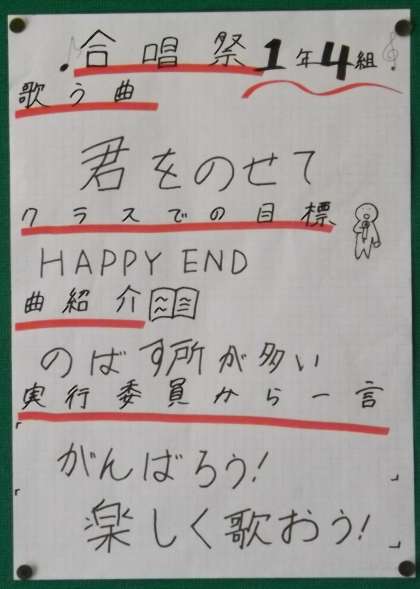 合唱祭 1年4組
歌う曲
君をのせて
クラスでの目標
HAPPY END
曲紹介
のばす所が多い
実行委員から一言
「がんばろう!
楽しく歌おう!」